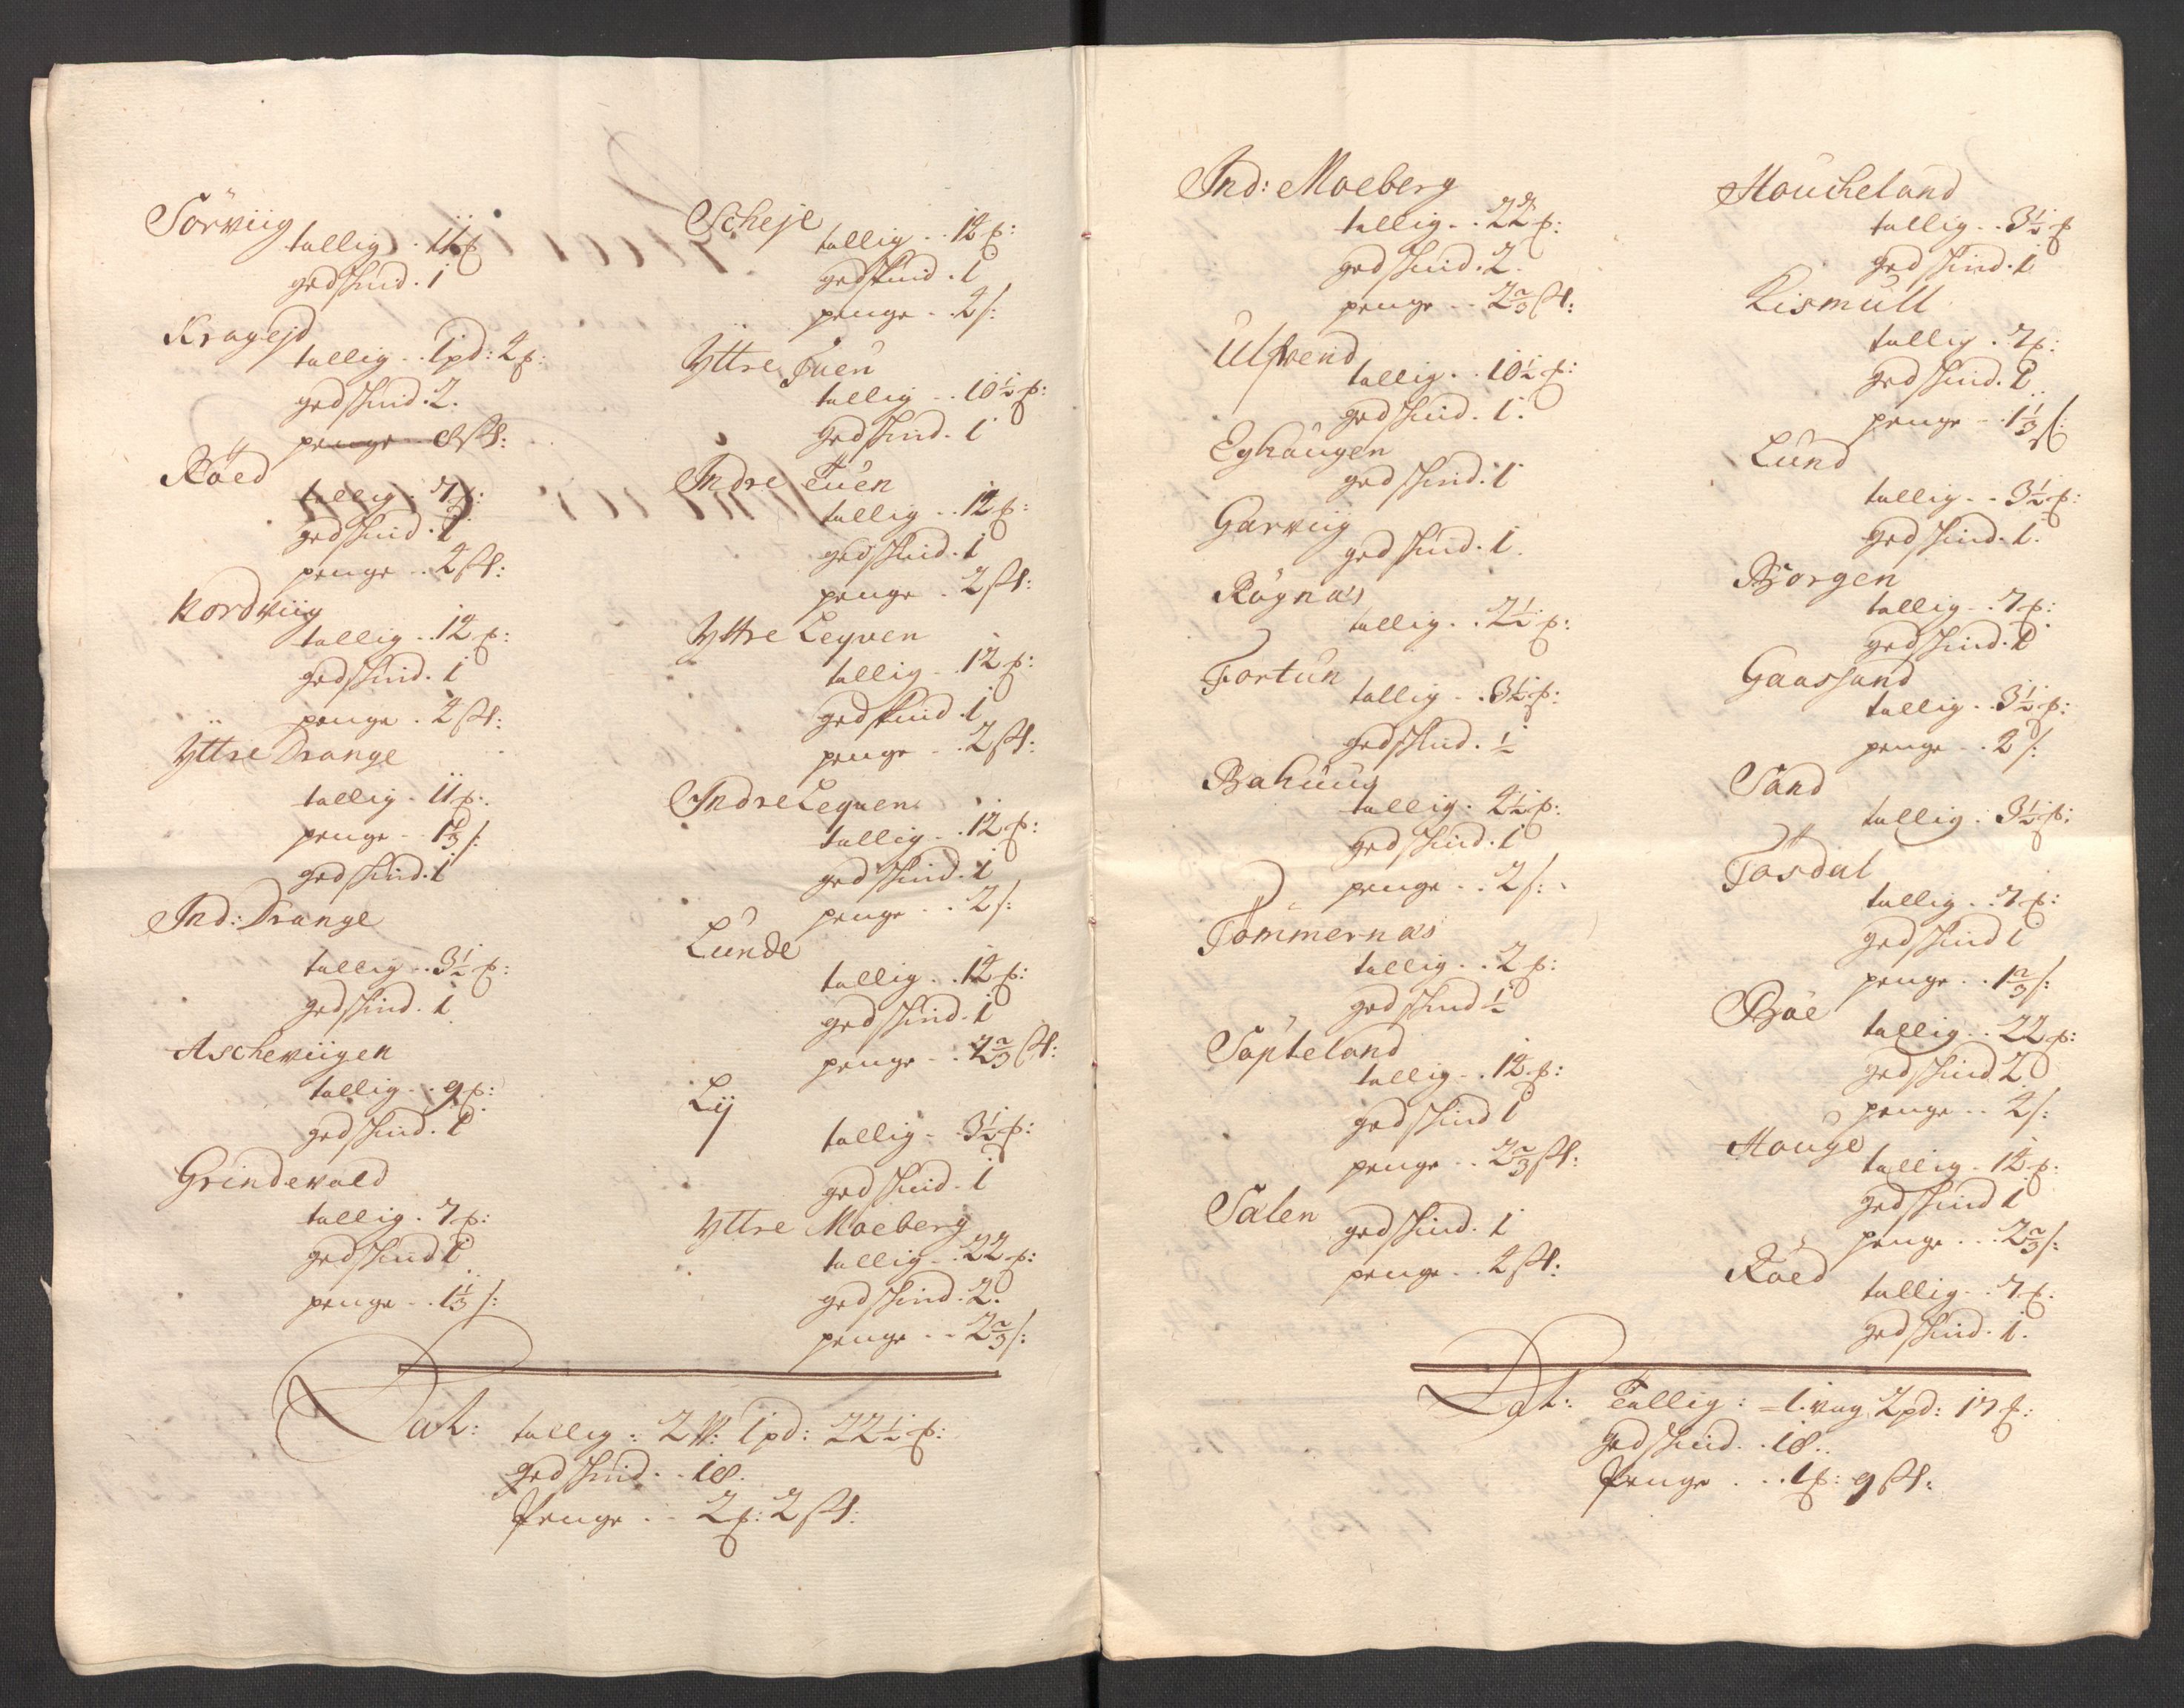 Sörviig
tallig . 11 ℔
gedskind . 1
Kragejd
tallig .. 1 pd: 2 ℔:
gedskind . 2.
penge .. 8 sk:
Röed
tallig . 7 ℔:
gedskind . 1
penge .. 2 sk:
Kordviig
tallig .. 12 ℔:
gedskind . 1
penge . 2 sk:
Yttre Drange
tallig . 11 ℔.
penge .. 1⅓ s:
gedskind . 1
Ind: Drange
tallig .. 3½ ℔:
gedskind . 1
Ascheviigen
tallig .. 9 ℔:
gedskind . 1
Grindevald
tallig . 7 ℔:
gedskind 1
penge .. 1⅓ s:
Scheje
tallig .. 12 ℔:
gedskind . 1
penge .. 2 s:
Yttre Tuen
tallig .. 10½ ℔:
gedskind . 1
Indre Tuen
tallig .. 12 ℔:
gedskind . 1
penge . 2 sk:
Yttre Leqven
tallig .. 12 ℔:
gedskind . 1
penge .. 2 sk:
Indre Leqven
tallig .. 12 ℔:
gedskind . 1
penge .. 2 s:
Lunde
tallig .. 12 ℔:
gedskind . 1
penge .. 2⅔ sk:
Lij
tallig .. 3½ ℔:
gedskind . 1
Yttre Moeberg
tallig .. 22 ℔:
gedskind . 2.
penge .. 2⅔ s:
Lat: tallig : 2 W: 1 pd: 22½ ℔:
gedskind .. 18.
Penge .. 2 ℔: 2 sk:
Ind: Moeberg
tallig .. 22 ℔:
gedskind . 2.
penge .. 2⅔ sk:
Ulfvend
tallig .. 10½ ℔:
gedskind . 1.
Eghaugen
gedskind . 1
Garviig
gedskind . 1.
Rögnæs
tallig .. 2½ ℔:
Fortun
tallig .. 3½ ℔:
gedskind . ½
Bahuus
tallig : 2½ ℔:
gedskind . 1
penge .. 2 s:
Tömmernæs
tallig .. 2 ℔:
gedskind ½
Söpteland
tallig .. 12 ℔:
gedskind 1
penge .. 2⅔ sk:
Salen
gedskind . 1
penge .. 2 sk:
Haucheland
tallig .. 3½ ℔
gedskind . 1
Kismull
tallig . 7 ℔:
gedskind . 1
penge .. 1⅓ s:
Lund
tallig .. 3½ ℔:
gedskind . 1.
Borgen
tallig .. 7 ℔:
gedskind . 1
Gaassand
tallig .. 3½ ℔:
penge .. 2 s:
Sand
tallig . 3½ ℔:
Tösdal
tallig .. 7 ℔:
gedskind 1
penge .. 1⅔ s:
Böe
tallig .. 22 ℔:
gedskind 2
penge .. 2 s:
Hauge
tallig . 12 ℔:
gedskind 1
penge .. 2⅔ s:
Röed
tallig .. 7 ℔.
gedskind . 1.
Lat: Tallig : = 1. vog 2 pd: 17 ℔:
gedskind .. 18..
Penge ... 1 ℔: 9 sk: